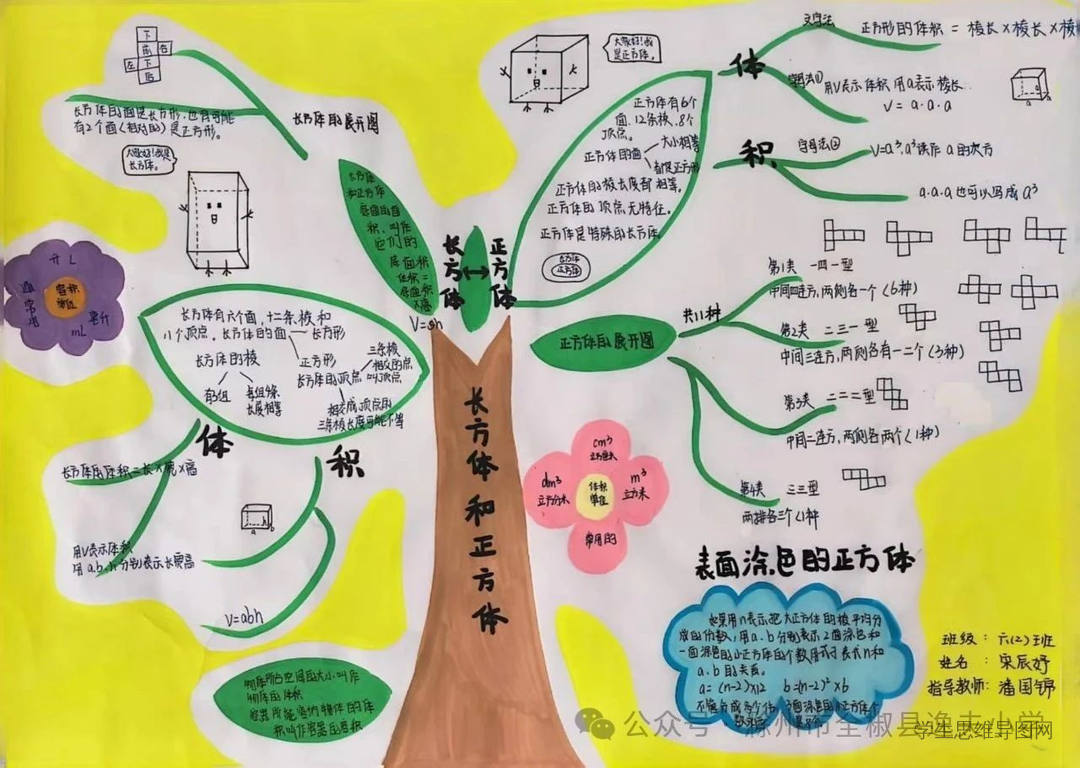 下
前 右
左 下
后
长方体的展开图
长方体的面是长方形，也有可能
有2个面（相对的）是正方形。
大家好！我是
长方体。
长方体
和正方体
底面的面
积，叫作
它们的
底面积
体积＝
底面积
x高
V=sh
长方体
↔
正方体
升 L
容积
单位
通常用
毫升
mL
长方体有六个面，十二条棱和
八个顶点。长方体的面
长方形
正方形
长方体的棱
有3组
每组4条
长度相等
长方体的顶点
三条棱
相交的点
叫顶点
相交成顶点的
三条棱长度可能不等
体
积
长方体的体积＝长×宽×高
用V表示体积
用a.b.h分别表示长宽高
V=abh
物体所占空间的大小，叫作
物体的体积
容器所能容纳物体的体
积叫作容器的容积
长方体和正方体
大家好！我
是正方体。
正方体有6个
面，12条棱，8个
顶点。
正方体的面
大小相等
都是正方形
正方体的棱长度都相等。
正方体的顶点无特征。
正方体是特殊的长方体。
长方体
正方体
体
积
文字法
正方形的体积 = 棱长×棱长×棱
字母法①
用V表示体积 用a表示棱长
V = a·a·a
字母法②
V=a³.a³读作a的次方
a.a.a也可以写成a³
正方体的展开图
共11种
第1类 一四一型
中间四连方，两侧各一个（6种）
第2类 二三一型
中间三连方，两侧各有一二个（3种）
第3类 二二二型
中间二连方，两侧各两个（1种）
第4类 三三型
两排各三个（1种
cm³
立方厘米
dm³
立方分米
体积
单位
m³
立方米
常用的
表面涂色的正方体
如果用n表示把大正方体的棱平均分
成的份数，用a.b分别表示2面涂色和
一面涂色的小正方体的个数，用式子表示n和
a.b的关系。
a=(n-2)×12 b=(n-2)²×6
班级：六(2)班
姓名：宋辰妤
指导教师：潘国锦
公众号·滁州市全椒县渔夫小学
学生思维导图网